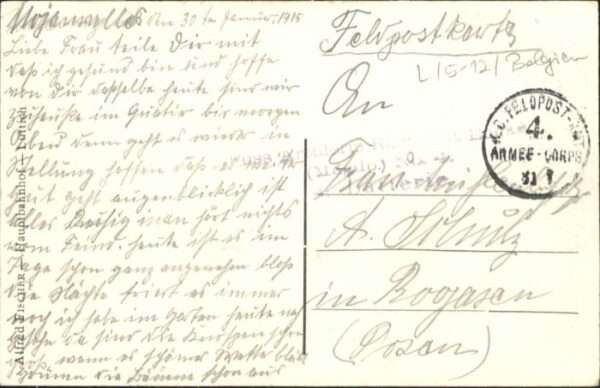 den 30 ten Januar 1915
Liebe Frau teile Dir mit
daß ich gesund bin und hoffe
von Dir dasselbe heute sind wir
zuhause im Quartir bis morgen
Abend dann geht es wieder in
Stellung hoffen daß es
gut geht augenblicklich ist
alles ruhig man hört nichts
vom Feind. heute ist es im
Tage schon ganz angenehm bloß
die Nächte friert es immer
noch ich habe im Garten heute
da sind die Knospen schon
wenn es schönes Wetter bleibt
die Bäume schon aus
Alfred Fischer Hauptbahnhof Lüttich
Feldpostkarte
L/5-12/Belgien
An
Frau
A. Schulz
in Rogasen
(Posen)
K.D. FELDPOST-AMT
4.
ARMEE-CORPS
31 1